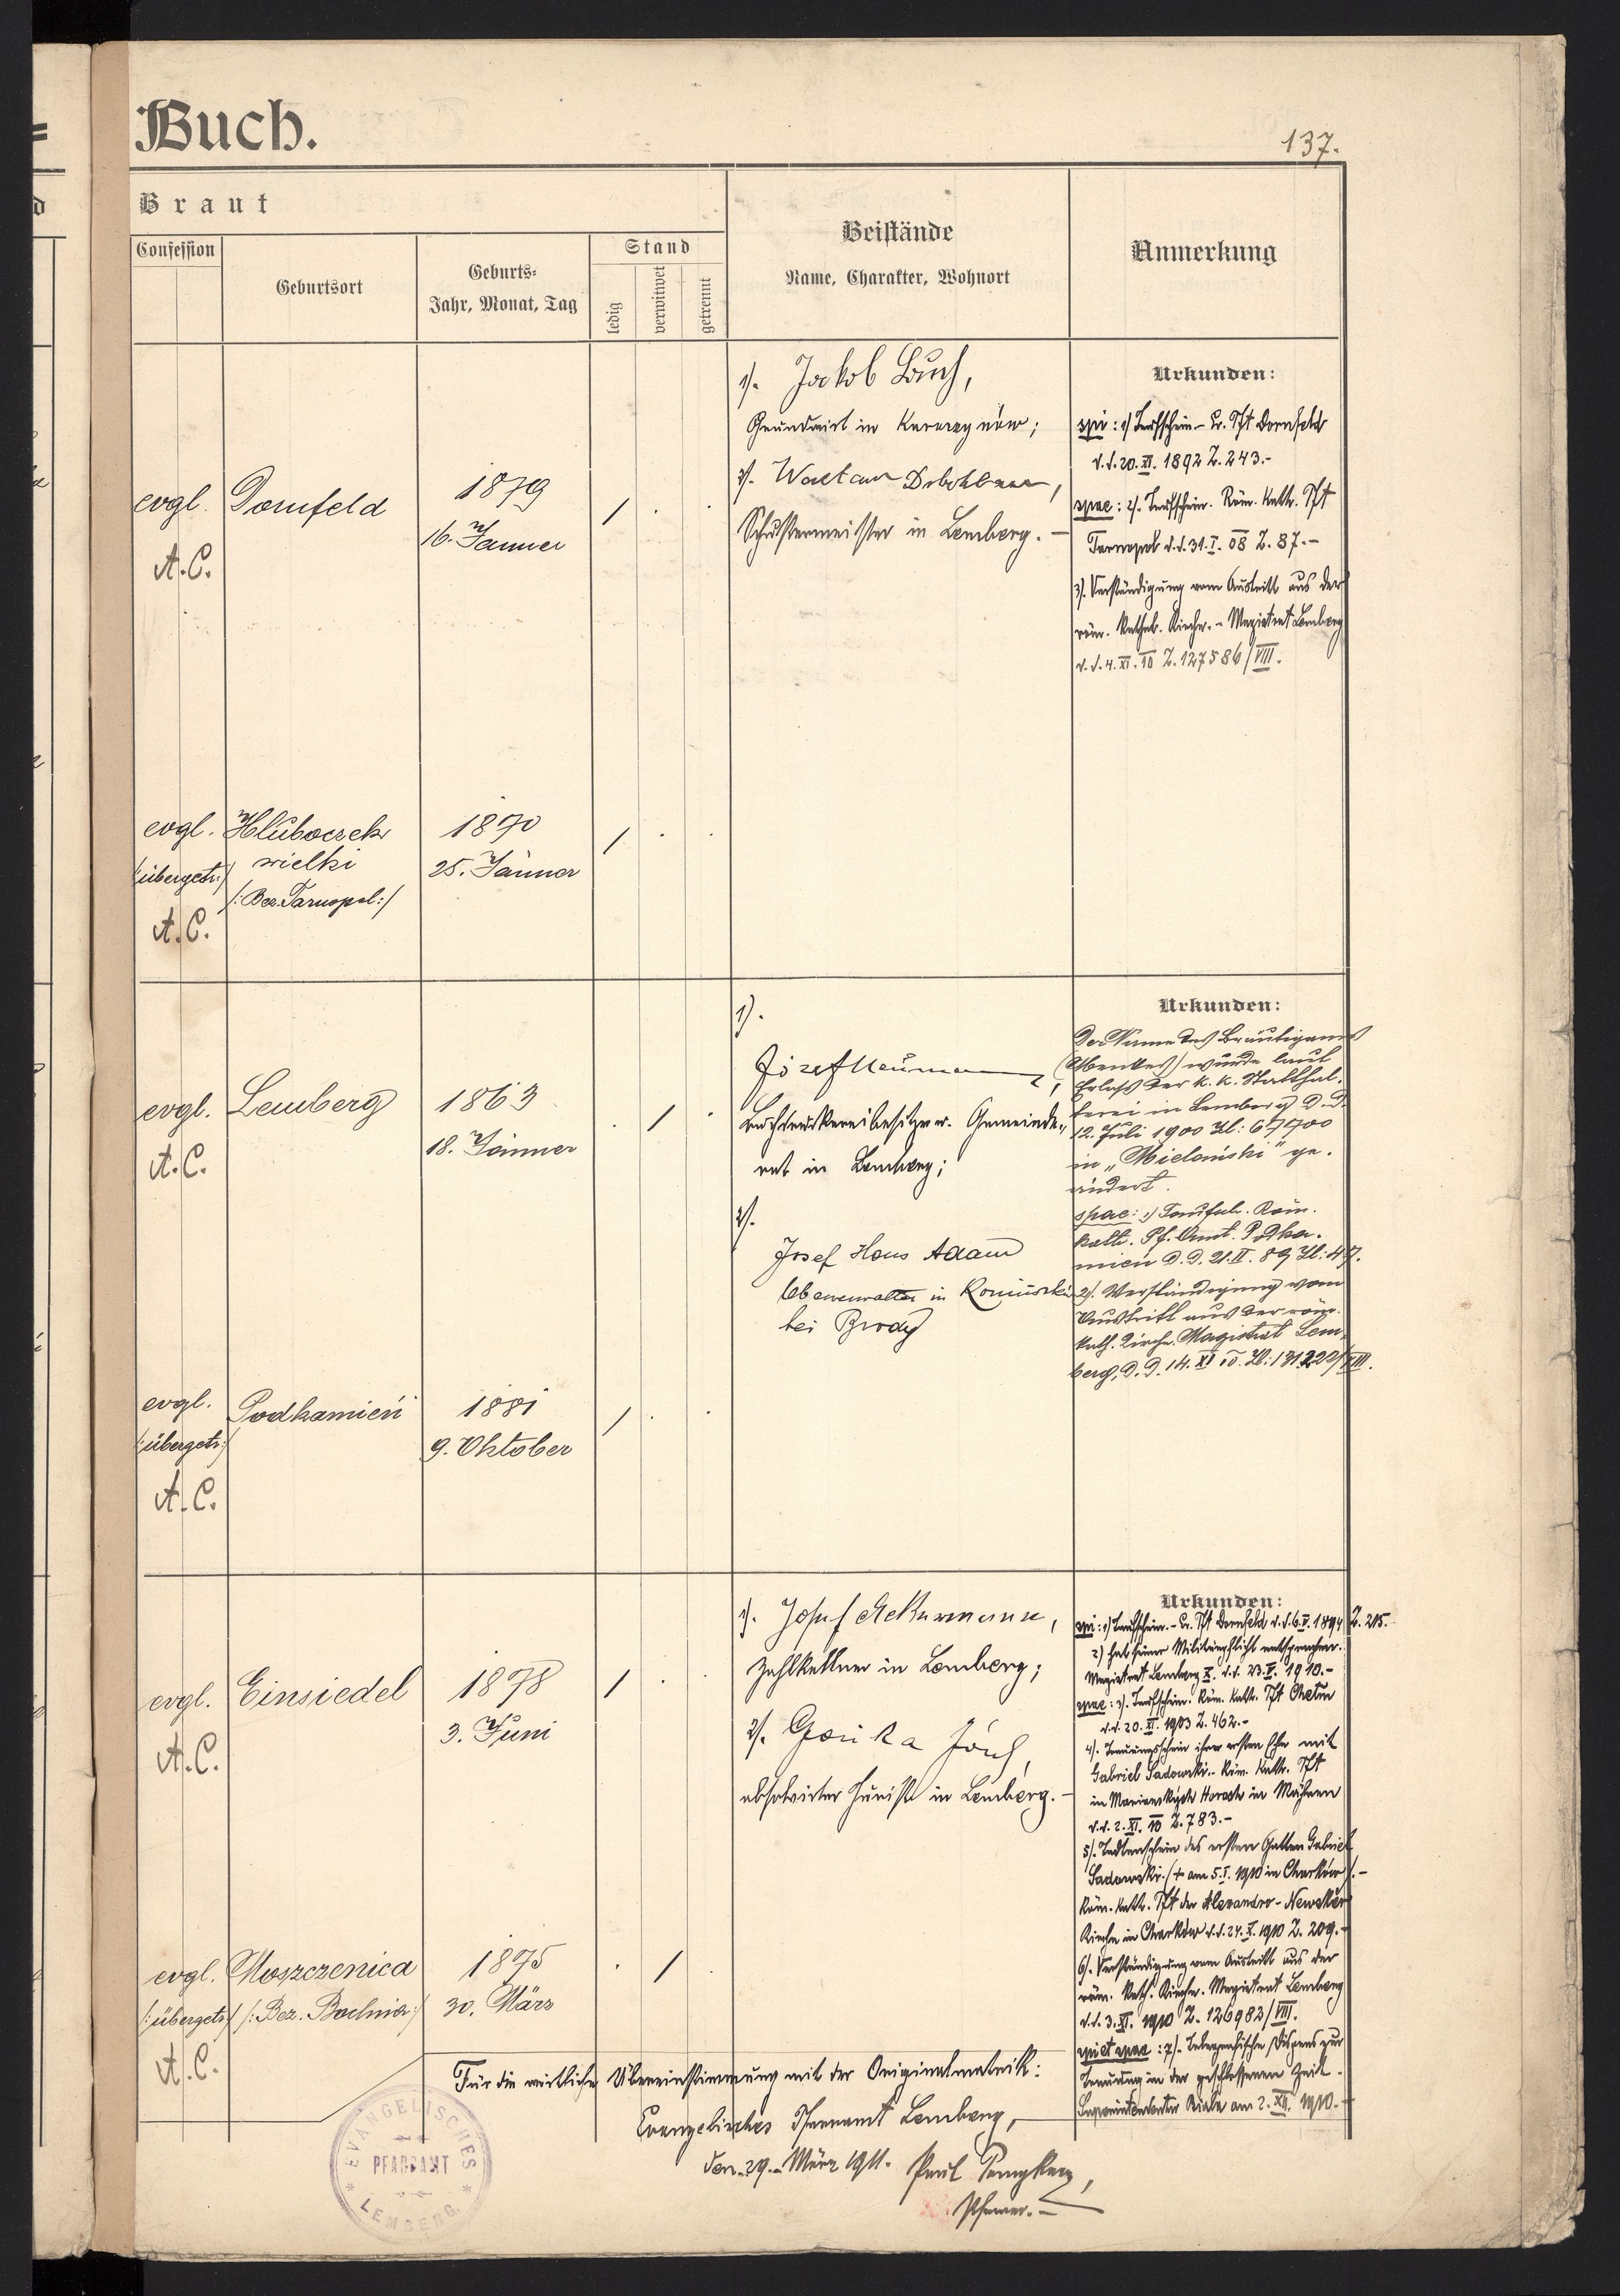 Buch.
137.
Braut
Confession
Geburtsort
Geburts-
Jahr, Monat, Tag
Stand
ledig
verwitwet
getrennt
Beistände
Name, Charakter, Wohnort
Anmerkung
evgl.
A.C.
Dornfeld
1879
16. Jänner
/ . .
1). Jakob Bauch,
Grundwirt in
2). Wacław
Schustermeister in Lemberg. –
Urkunden:
spi: 1) Taufschein – Ev. Pft Dornfeld
d.d. 20. XI. 1892 Z. 243.-
spae: 2). Taufschein. Röm. Kath. Pft
Tarnopol d.d. 31. I. 08 Z. 87.-
3). Verständigung vom Austritt aus der
röm. kathol. Kirche. - Magistrat Lemberg
d.d. 4. XI. 10 Z. 127586/VIII.
evgl.
/:übergetr:/
A.C.
Hluboczek
wielki
/: Bez. Tarnopol :/
1870
25. Jänner
/ . .
evgl.
A.C.
Lemberg
1863
18. Jänner
. / .
1).
Józef Neuman,
Buchdruckereibesitzer u. Gemeinde-
rat in Lemberg;
2).
Josef Hans Adam
in
bei Brody
Urkunden:
Der Name des Bräutigams
(Menkes) wurde laut
Erlaß der k. k. Statthal-
terei in Lemberg d. d.
12. Juli 1900 Zl: 67700
in „Mieloński" ge-
ändert.
spae: 1) Taufsch. Röm.
kath. Pf. Amt. Podka-
mień d. d. 21. II. 89 Zl: 47.
2). Verständigung vom
Austritt aus der röm.
kath. Kirche. Magistrat Lem-
berg, d. d. 14. XI 10. Zl: 131222/VIII.
evgl.
/:übergetr:/
A.C.
Podkamień
1881
9. Oktober
/ . .
evgl.
A.C.
Einsiedel
1878
3. Juni
/ . .
1). Josef Ackermann,
Zahlkellner in Lemberg;
2).
absolvirter Jurist in Lemberg. –
Urkunden:
spi: 1) Taufschein. - Ev. Pft Dornfeld d.d. 6. V. 1894 Z. 215.-
2) hat seiner Militärpflicht entsprochen.
Magistrat Lemberg X. d.d. 23. V. 1910.-
spae: 3). Taufschein. Röm. Kath. Pft Chełm
d.d. 20. XI. 1903 Z. 462.-
4). Trauungsschein ihrer ersten Ehe mit
Gabriel Sadowski. - Röm. Kath. Pft
in in Mähren
d.d. 2. XI. 10 Z. 783.-
5). Todtenschein des ersten Gatten Gabriel
Sadowski. (+ am 5. I. 1910 in Charków). -
Röm. Kath. Pft der Alexandro-Newsker
Kirche in Charków d.d. 24. X. 1910 Z. 209.-
6). Verständigung vom Austritt aus der
röm. kath. Kirche. Magistrat Lemberg
d.d. 3. XI. 1910 Z. 126982/VIII.
spi et spae: 7). Dispens zur
Trauung in der geschlossenen Zeit.
Superintendentur Biala am 2. XII. 1910.-
evgl.
/:übergetr:/
A.C.
Moszczenica
/: Bez. Bochnia :/
1875
30. März
. / .
Für die wörtliche Übereinstimmung mit der Originalmatrik:
Evangelisches Pfarramt Lemberg,
den 29. März 1911. Paul
Pfarrer. –
EVANGELISCHES
PFARRAMT
* LEMBERG *